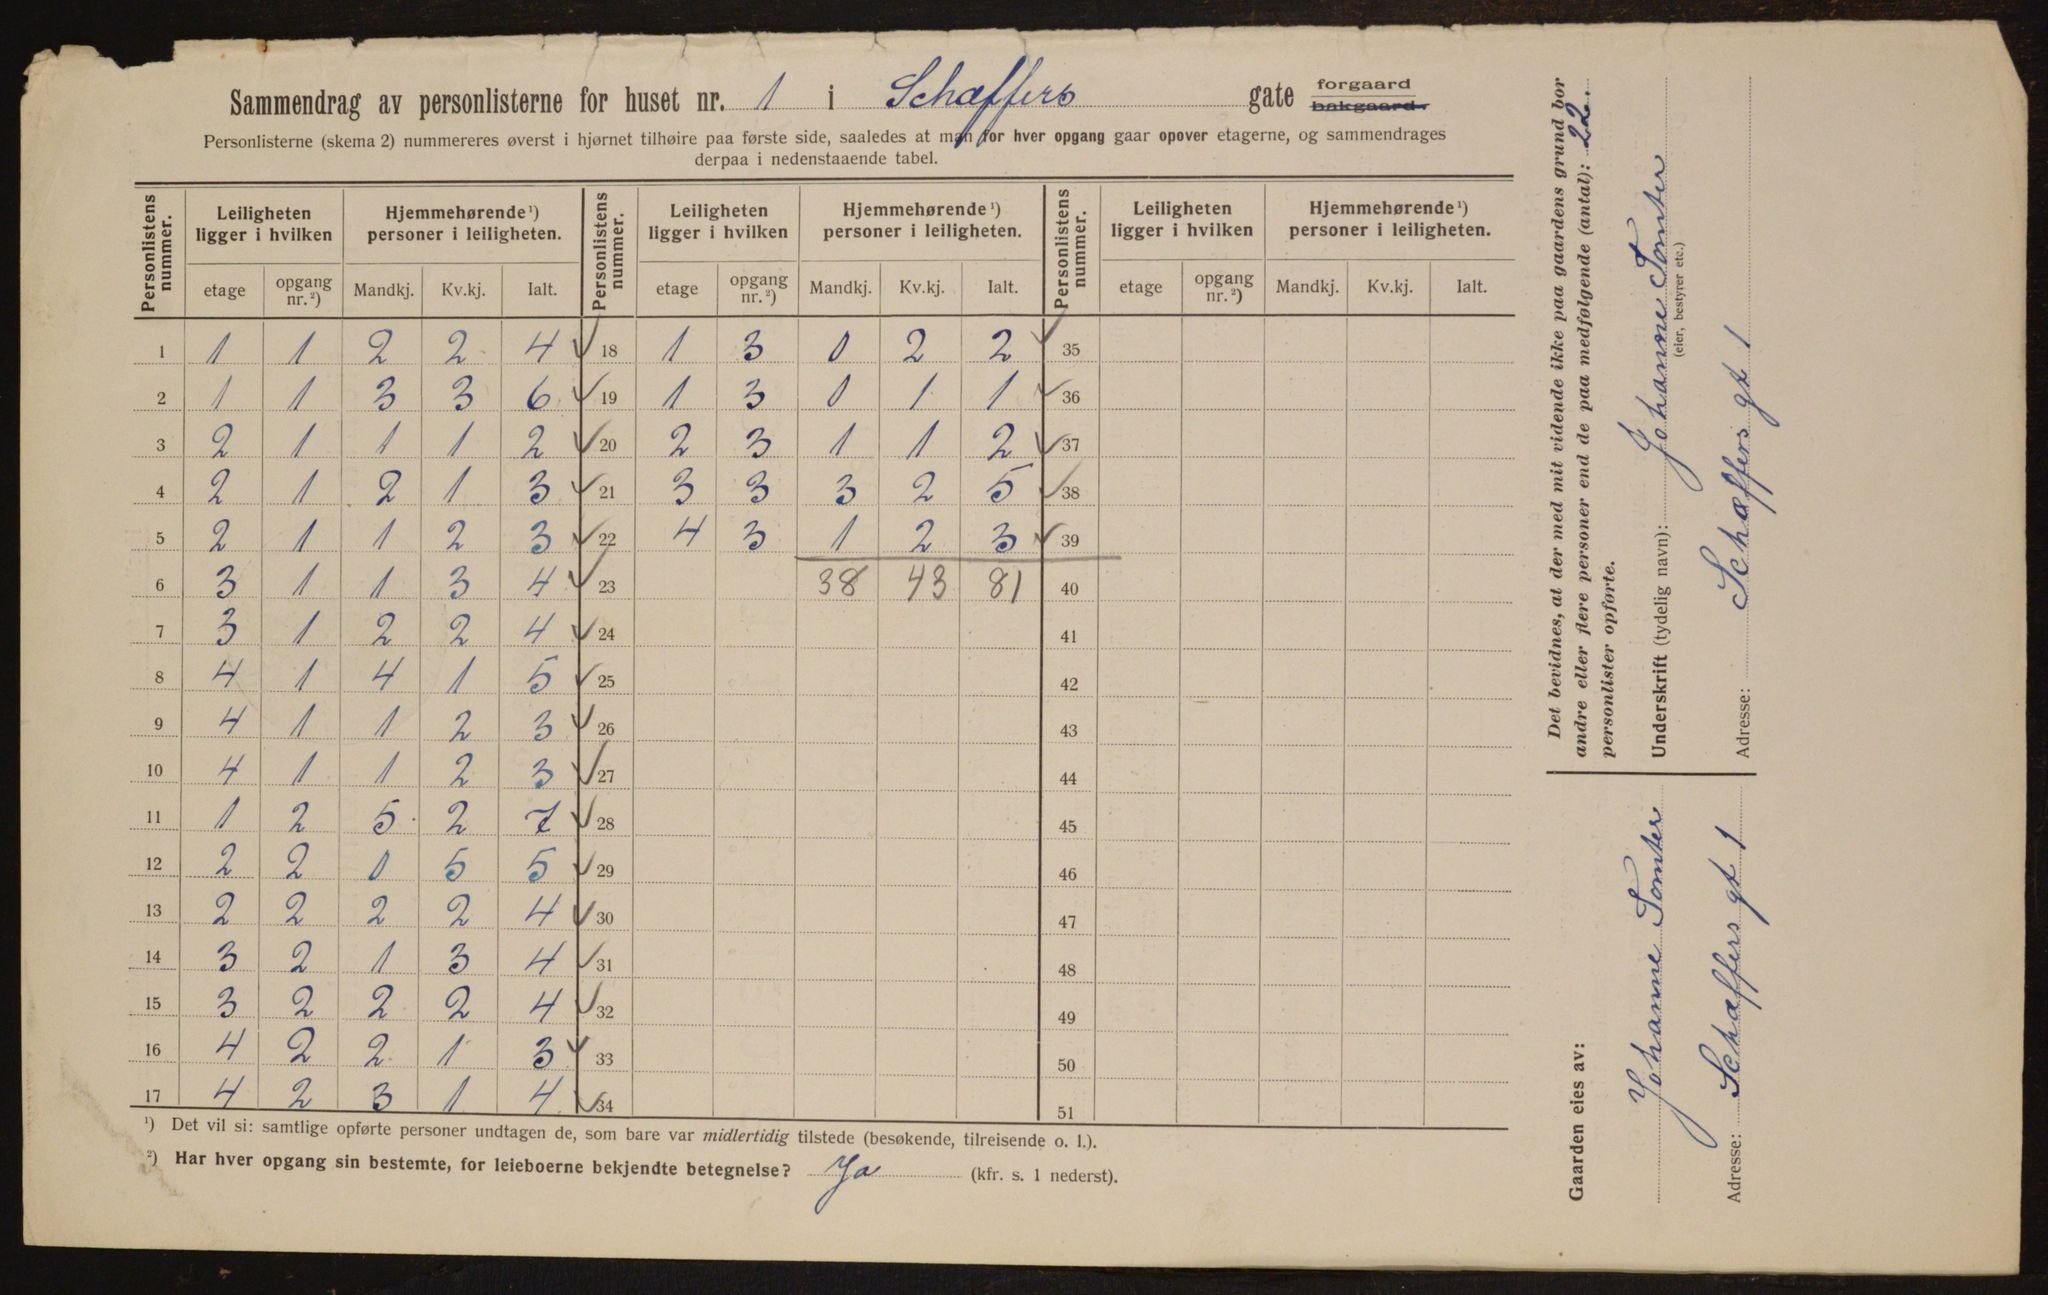 Sammendrag av personlisterne for huset nr. 1 i Schæffers gate forgaard bakgaard.
Personlisterne (skema 2) nummereres øverst i hjørnet tilhøire paa første side, saaledes at man for hver opgang gaar opover etagerne, og sammendrages
derpaa i nedenstaaende tabel.
Personlistens nummer. Leiligheten ligger i hvilken Hjemmehørende ¹) personer i leiligheten. Personlistens nummer. Leiligheten ligger i hvilken Hjemmehørende ¹) personer i leiligheten. Personlistens nummer. Leiligheten ligger i hvilken Hjemmehørende ¹) personer i leiligheten.
etage opgang nr. ²) Mandkj. Kv.kj. Ialt. etage opgang nr. ²) Mandkj. Kv.kj. Ialt. etage opgang nr. ²) Mandkj. Kv.kj. Ialt.
1 1 1 2 2 4 18 1 3 0 2 2 35
2 1 1 3 3 6 19 1 3 0 1 1 36
3 2 1 1 1 2 20 2 3 1 1 2 37
4 2 1 2 1 3 21 3 3 3 2 5 38
5 2 1 1 2 3 22 4 3 1 2 3 39
6 3 1 1 3 4 23 38 43 81 40
7 3 1 2 2 4 24 41
8 4 1 4 1 5 25 42
9 4 1 1 2 3 26 43
10 4 1 1 2 3 27 44
11 1 2 5 2 7 28 45
12 2 2 0 5 5 29 46
13 2 2 2 2 4 30 47
14 3 2 1 3 4 31 48
15 3 2 2 2 4 32 49
16 4 2 2 1 3 33 50
17 4 2 3 1 4 34 51
¹) Det vil si: samtlige opførte personer undtagen de, som bare var midlertidig tilstede (besøkende, tilreisende o. l.).
²) Har hver opgang sin bestemte, for leieboerne bekjendte betegnelse? Ja (kfr. s. 1 nederst).
Det bevidnes, at der med mit vidende ikke paa gaardens grund bor
andre eller flere personer end de paa medfølgende (antal): 22.
personlister opførte.
Underskrift (tydelig navn): Johanne Tomter
(eier, bestyrer etc.)
Adresse: Schæffers gt 1
Gaarden eies av:
Johanne Tomter
Adresse: Schæffers gt 1